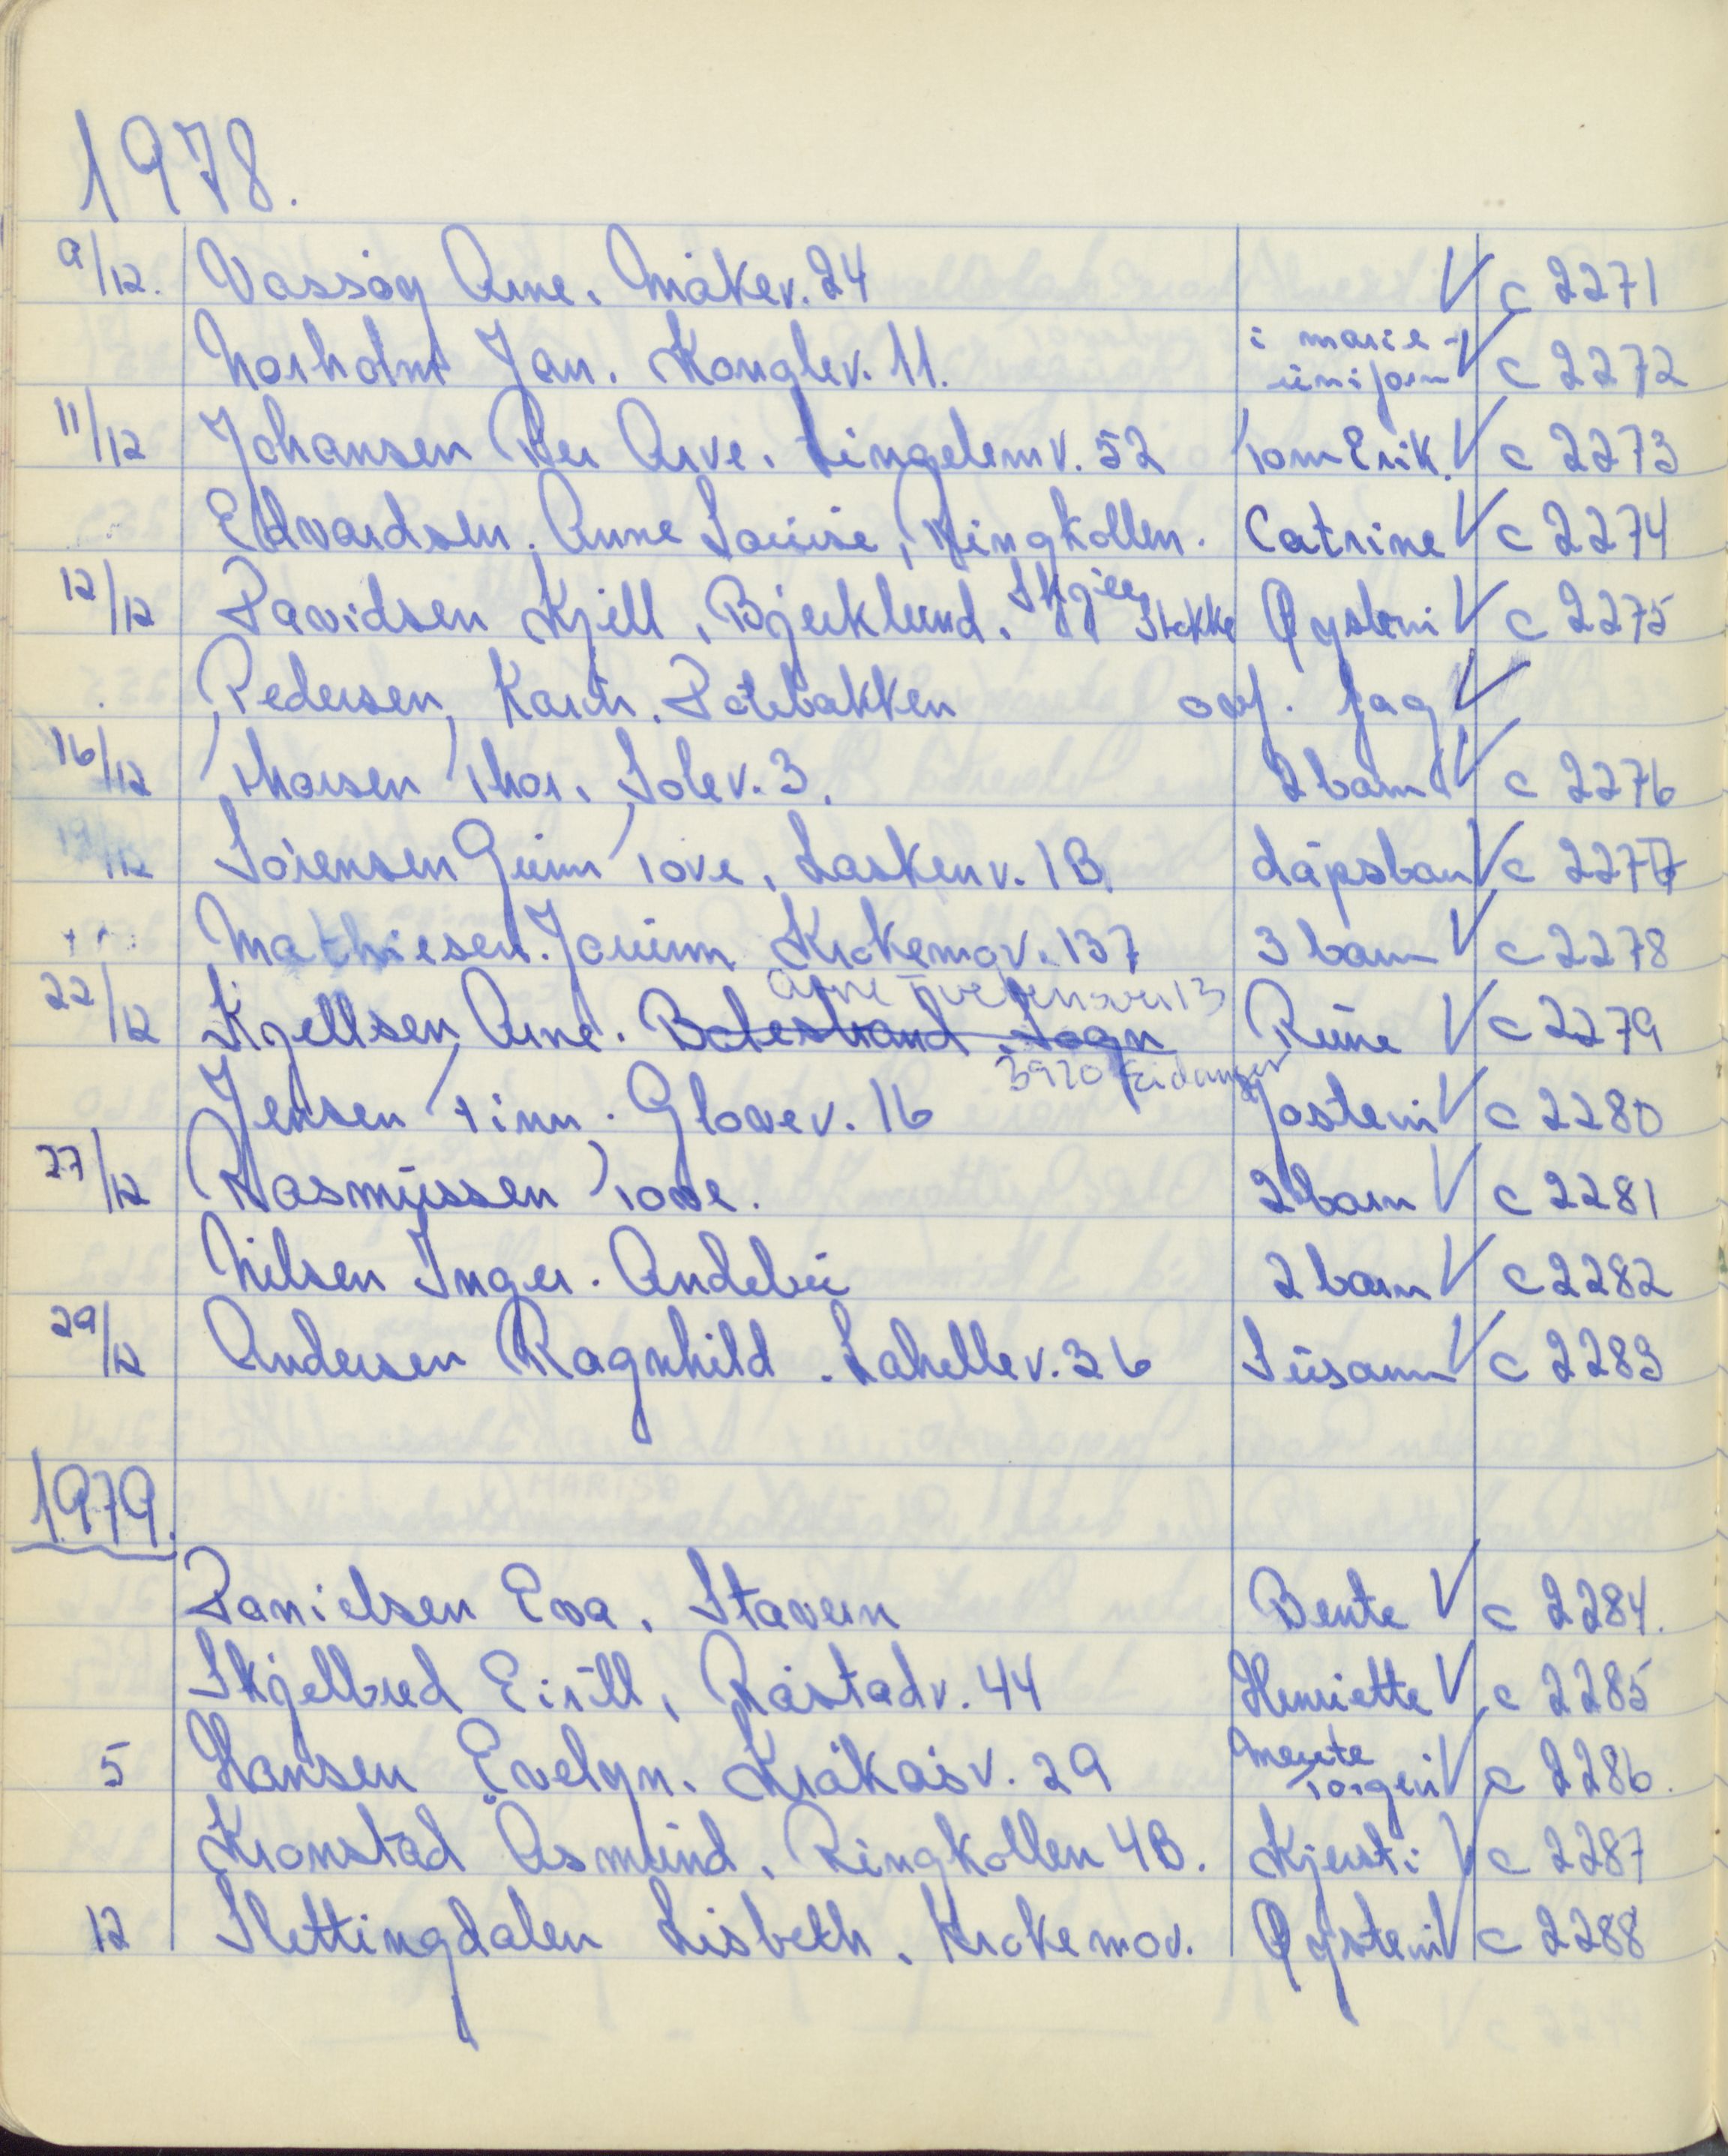 1978.
9/12. Vassøy Arne. Måkev. 24 V c 2271
Norholm Jan. Konglev. 11. i marie- uniform V c 2272
11/12 Johansen Per Arve. Lingelemv. 52 Tom Erik. V c 2273
Edvardsen. Anne Louise, Ringkollen. Catrine V c 2274
12/12 Davidsen Kjell, Bjerklund. Skjee Stokke Øystein V c 2275
Pedersen, Karin. Potebakken ovf. fag V
16/12 Thorsen Thor. Solev. 3. 2 barn V c 2276
19/12 Sørensen Gunn Tove, Laskenv. 1B dåpsbarn V c 2277
Mathiesen. Jorunn Krokemov. 137 3 barn V c 2278
22/12 Kjellsen Arne. Balestrand Sogn Rune V c 2279
3920 Eidanger
Jensen Finn. Glovev. 16 Jostein V c 2280
27/12 Rasmussen Tove. 2 barn V c 2281
Nilsen Inger. Andebu 2 barn V c 2282
29/12 Andersen Ragnhild. Lahellev. 36 Susann V c 2283
1979.
Danielsen Eva, Stavern Bente V c 2284.
Skjelbred Eirill, Råstadv. 44 Henriette V c 2285
5 Hansen Evelyn. Kråkåsv. 29 Merete Torgeir V c 2286.
Kronstad Åsmund, Ringkollen 4B. Kjersti V c 2287
12 Slettingdalen Lisbeth, Krokemov. Øystein V c 2288